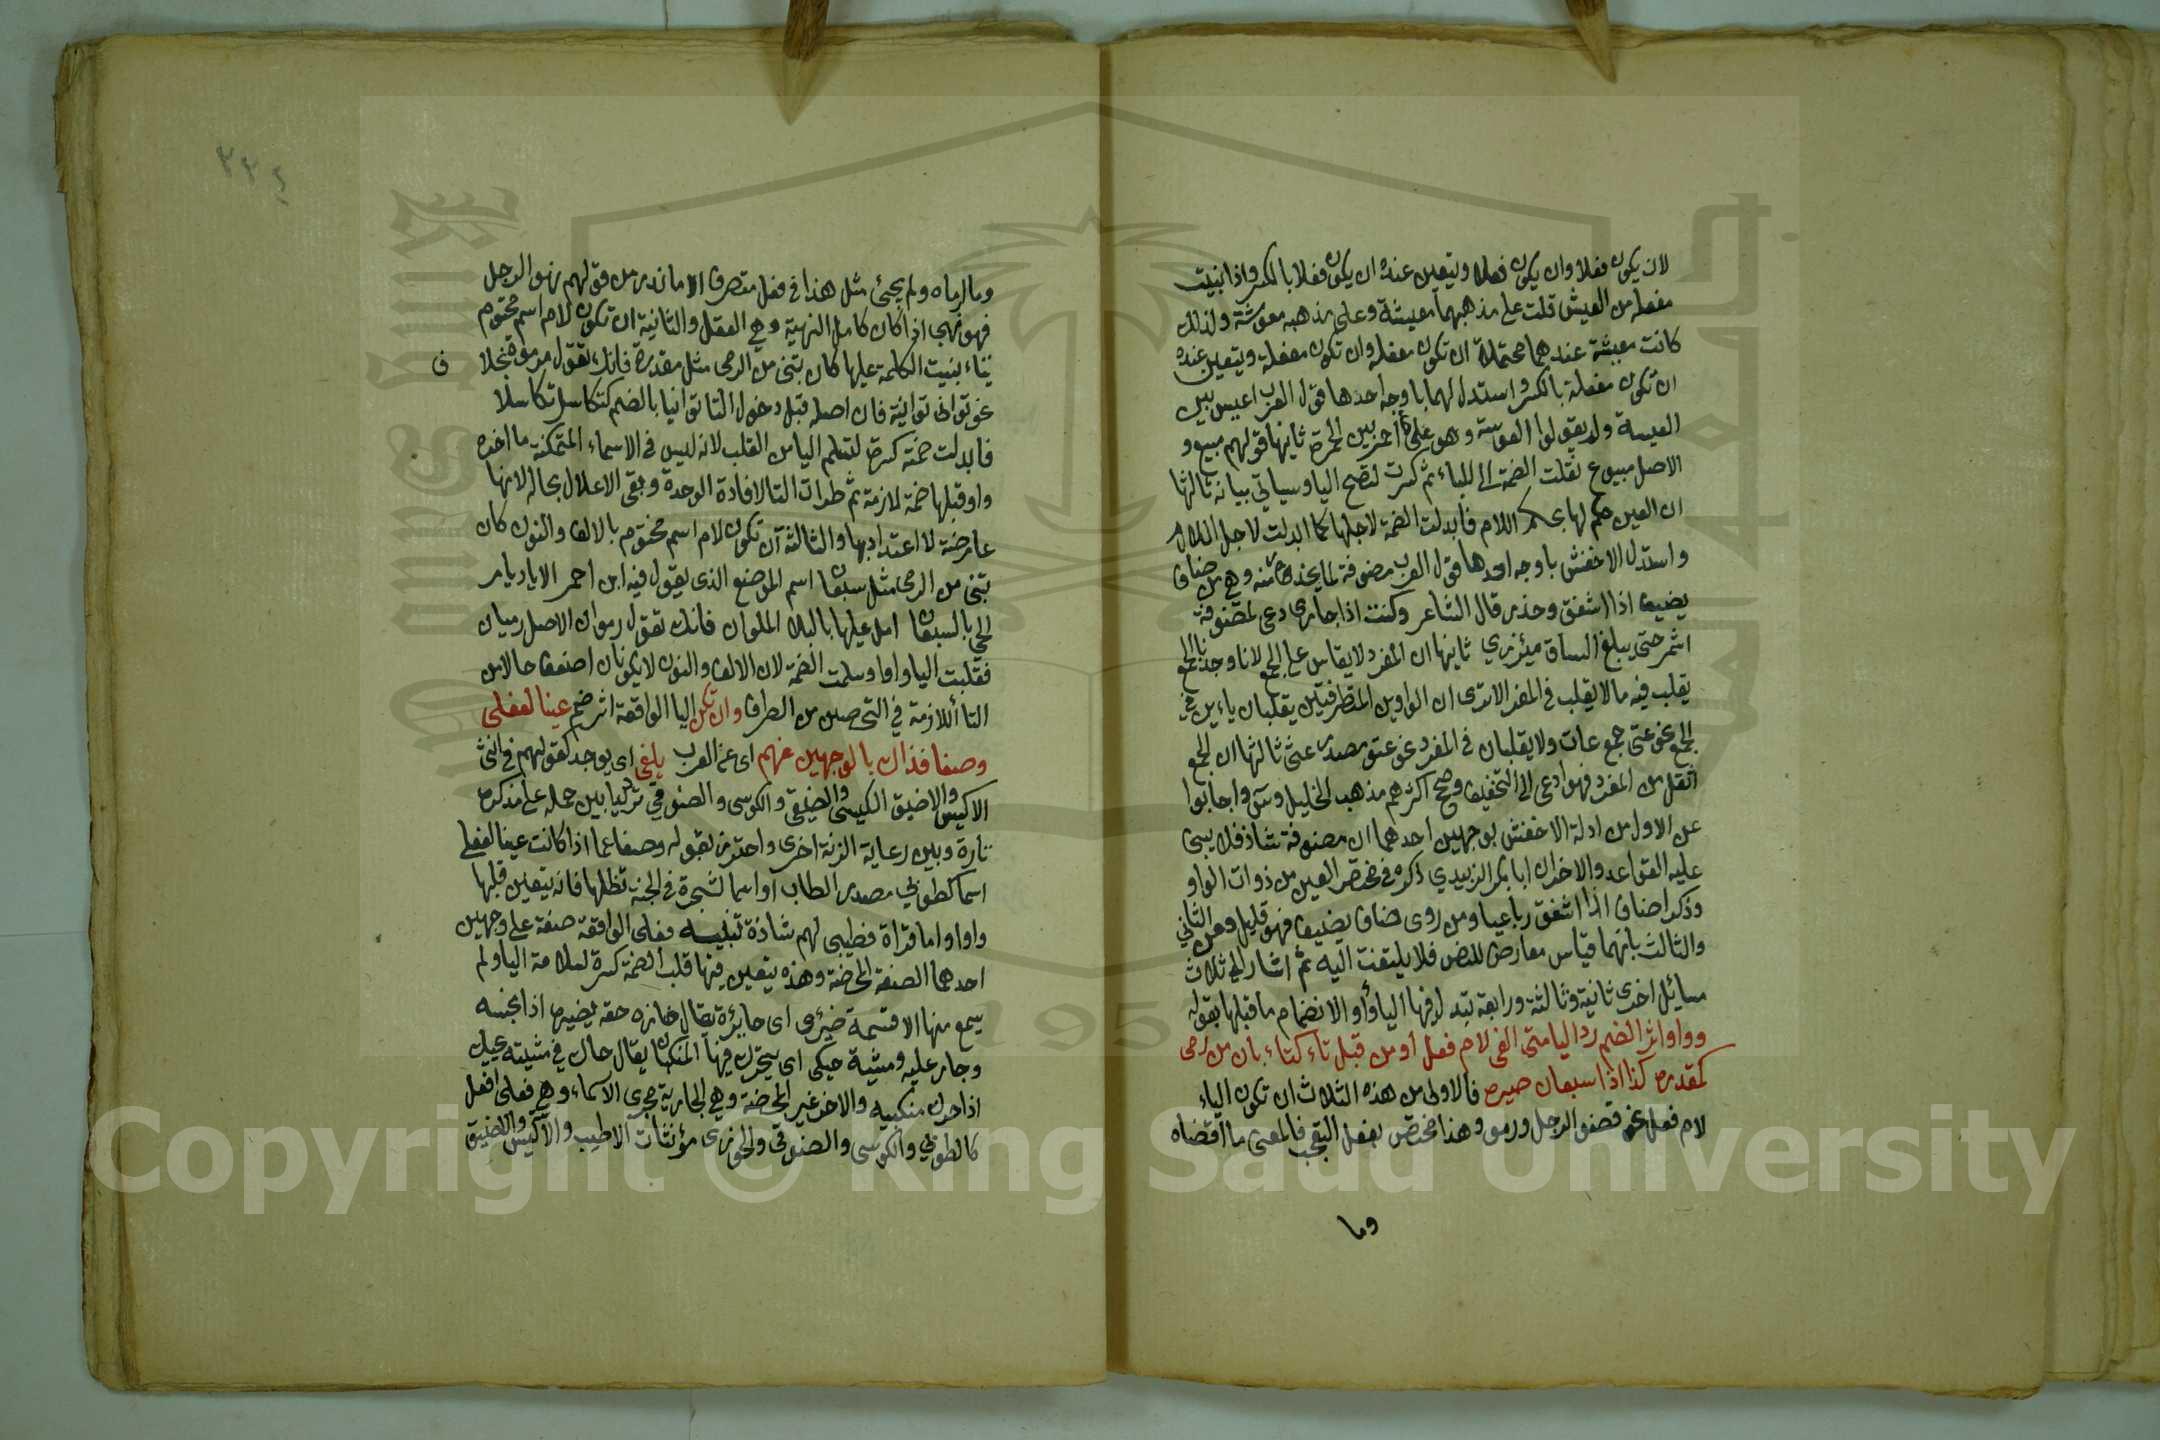 لان يكون فعلا وان يكون فعلا ويتعين عنده ان يكون فعلا بالكسر واذا بنيت
مفعله من العيش قلت على مذهبهما معيشة وعلى مذهبه معوشة ولذلك
كانت معيشة عندهما محتملة ان تكون مفعله وان تكون مفعلة ويتعين عنده
ان تكون مفعلة بالكسر واستدل لهما باوجه احدها قول العرب اعيس بين
العيسة ولم يقولوا العوسة وهو على احمر بين الحمرة ثانيها قولهم مبيع و
الاصل مبيوع نقلت الضمة الى الباء ثم كسرت لتصح اليا وسياتي بيانه ثالثها
ان العين حكم لها بحكم اللام فابدلت الضمة لاجلها كما ابدلت لاجل اللام
واستدل الاخفش باوجه احدها قول العرب مضوفة لما يحذر منه وهي من ضاف
يضيف اذا اشفق وحذر قال الشاعر وكنت اذا جاري دعى لمضوفة
اشمر حتى يبلغ الساق مئزري ثانيها ان المفرد لا يقاس على الجمع لانا وجدنا الجمع
يقلب فيه ما لا يقلب في المفرد الا ترى ان الواوين المتطرفتين يقلبان ياءين في
الجمع نحو عتي جمع عات ولا يقلبان في المفرد نحو عتو مصدر عتى ثالثها ان الجمع
اثقل من المفرد فهو ادعى الى التخفيف وصحح اكثرهم مذهب الخليل وس واجابوا
عن الاول من ادلة الاخفش بوجهين احدهما ان مضوفة شاذ فلا يبنى
عليه القواعد والاخر ان ابا بكر الزبيدي ذكره في مختصر العين من ذوات الواو
وذكر اضاف اذا اشفق رباعيا ومن روى ضاف يضيف فهو قليل وعن الثاني
والثالث بانهما قياس معارض للنص فلا يلتفت اليه ثم اشار الى ثلاث
مسائل اخرى ثانية وثالثة ورابعة تبدل فيها اليا واوا لانضمام ما قبلها بقوله
وواوا اثر الضم رد اليا متى الفي لام فعل او من قبل تاء كتاء بان من رمى
كمقدره كذا اذا كسبعان صيره فالاولى من هذه الثلاث ان تكون الياء
لام فعل نحو قضو الرجل ورمو وهذا مختص بفعل التعجب فالمعنى ما اقضاه
وما
٢٢٤
وما ارماه ولم يجئ مثل هذا في فعل متصرف الا ما ندر من قولهم نهو الرجل
فهو نهي اذا كان كامل النهية وهي العقل والثانية ان تكون لام اسم مختوم
بتاء بنيت الكلمة عليها كان بتني من الرمى مثل مقدرة فانك تقول مرموة بخلا
ف
نحو توانى توانية فان اصله قبل دخول التا توانيا بالضم كتكاسل تكاسلا
فابدلت ضمته كسرة لتسلم اليا من القلب لانه ليس في الاسماء المتمكنة ما اخره
واو قبلها ضمة لازمة ثم طرات التا لافادة الوحدة وبقى الاعلال بحاله لانها
عارضة لا اعتداد بها والثالثة ان تكون لام اسم مختوم بالالف والنون كان
بتني من الرمى مثل سبعان اسم الموضع الذي يقول فيه ابن احمر الا يا ديار
الحي بالسبعان امل عليها بالبلا الملوان فانك تقول رموان الاصل رميان
فقلبت اليا واوا وسلمت الضمة لان الالف والنون لا يكونان اضعف حالا من
التا اللازمة في التحصين من الطرف وان تكن اليا الواقعة اثر ضم عينا لفعلى
وصفا فذاك بالوجهين عنهم اى عن العرب يلفى اى يوجد كقولهم في انثى
الاكيس والاضيق الكيسى والضيقى والكوسى والضوقى ترديدا بين حمله على مذكره
تارة وبين رعاية الزنة اخرى واحترز بقوله وصفا عما اذا كانت عينا لفعلى
اسما كطوبى مصدر الطاب او اسما لشجرة في الجنة تظلها فانه يتعين قلبها
واوا واما قراة فطيبى لهم شاذة تنبيه فعلى الواقعة صفة على وجهين
احدهما الصفة المحضة وهذه يتعين فيها قلب الضمة كسرة لسلامة اليا ولم
يسمع منها الا قسمة ضيزى اى جايزة يقال ضازه حقه يضيزه اذا بخسه
وجار عليه ومشية حيكى اى يتحرك فيها المنكبان يقال حاك في مشيته يحيك
اذا حرك منكبيه والاخر غير المحضة وهي الجارية مجرى الاسماء وهي فعلى افعل
كالطوبى والكوسى والضوقى والخوزى مؤنثات الاطيب والاكيس والاضيق